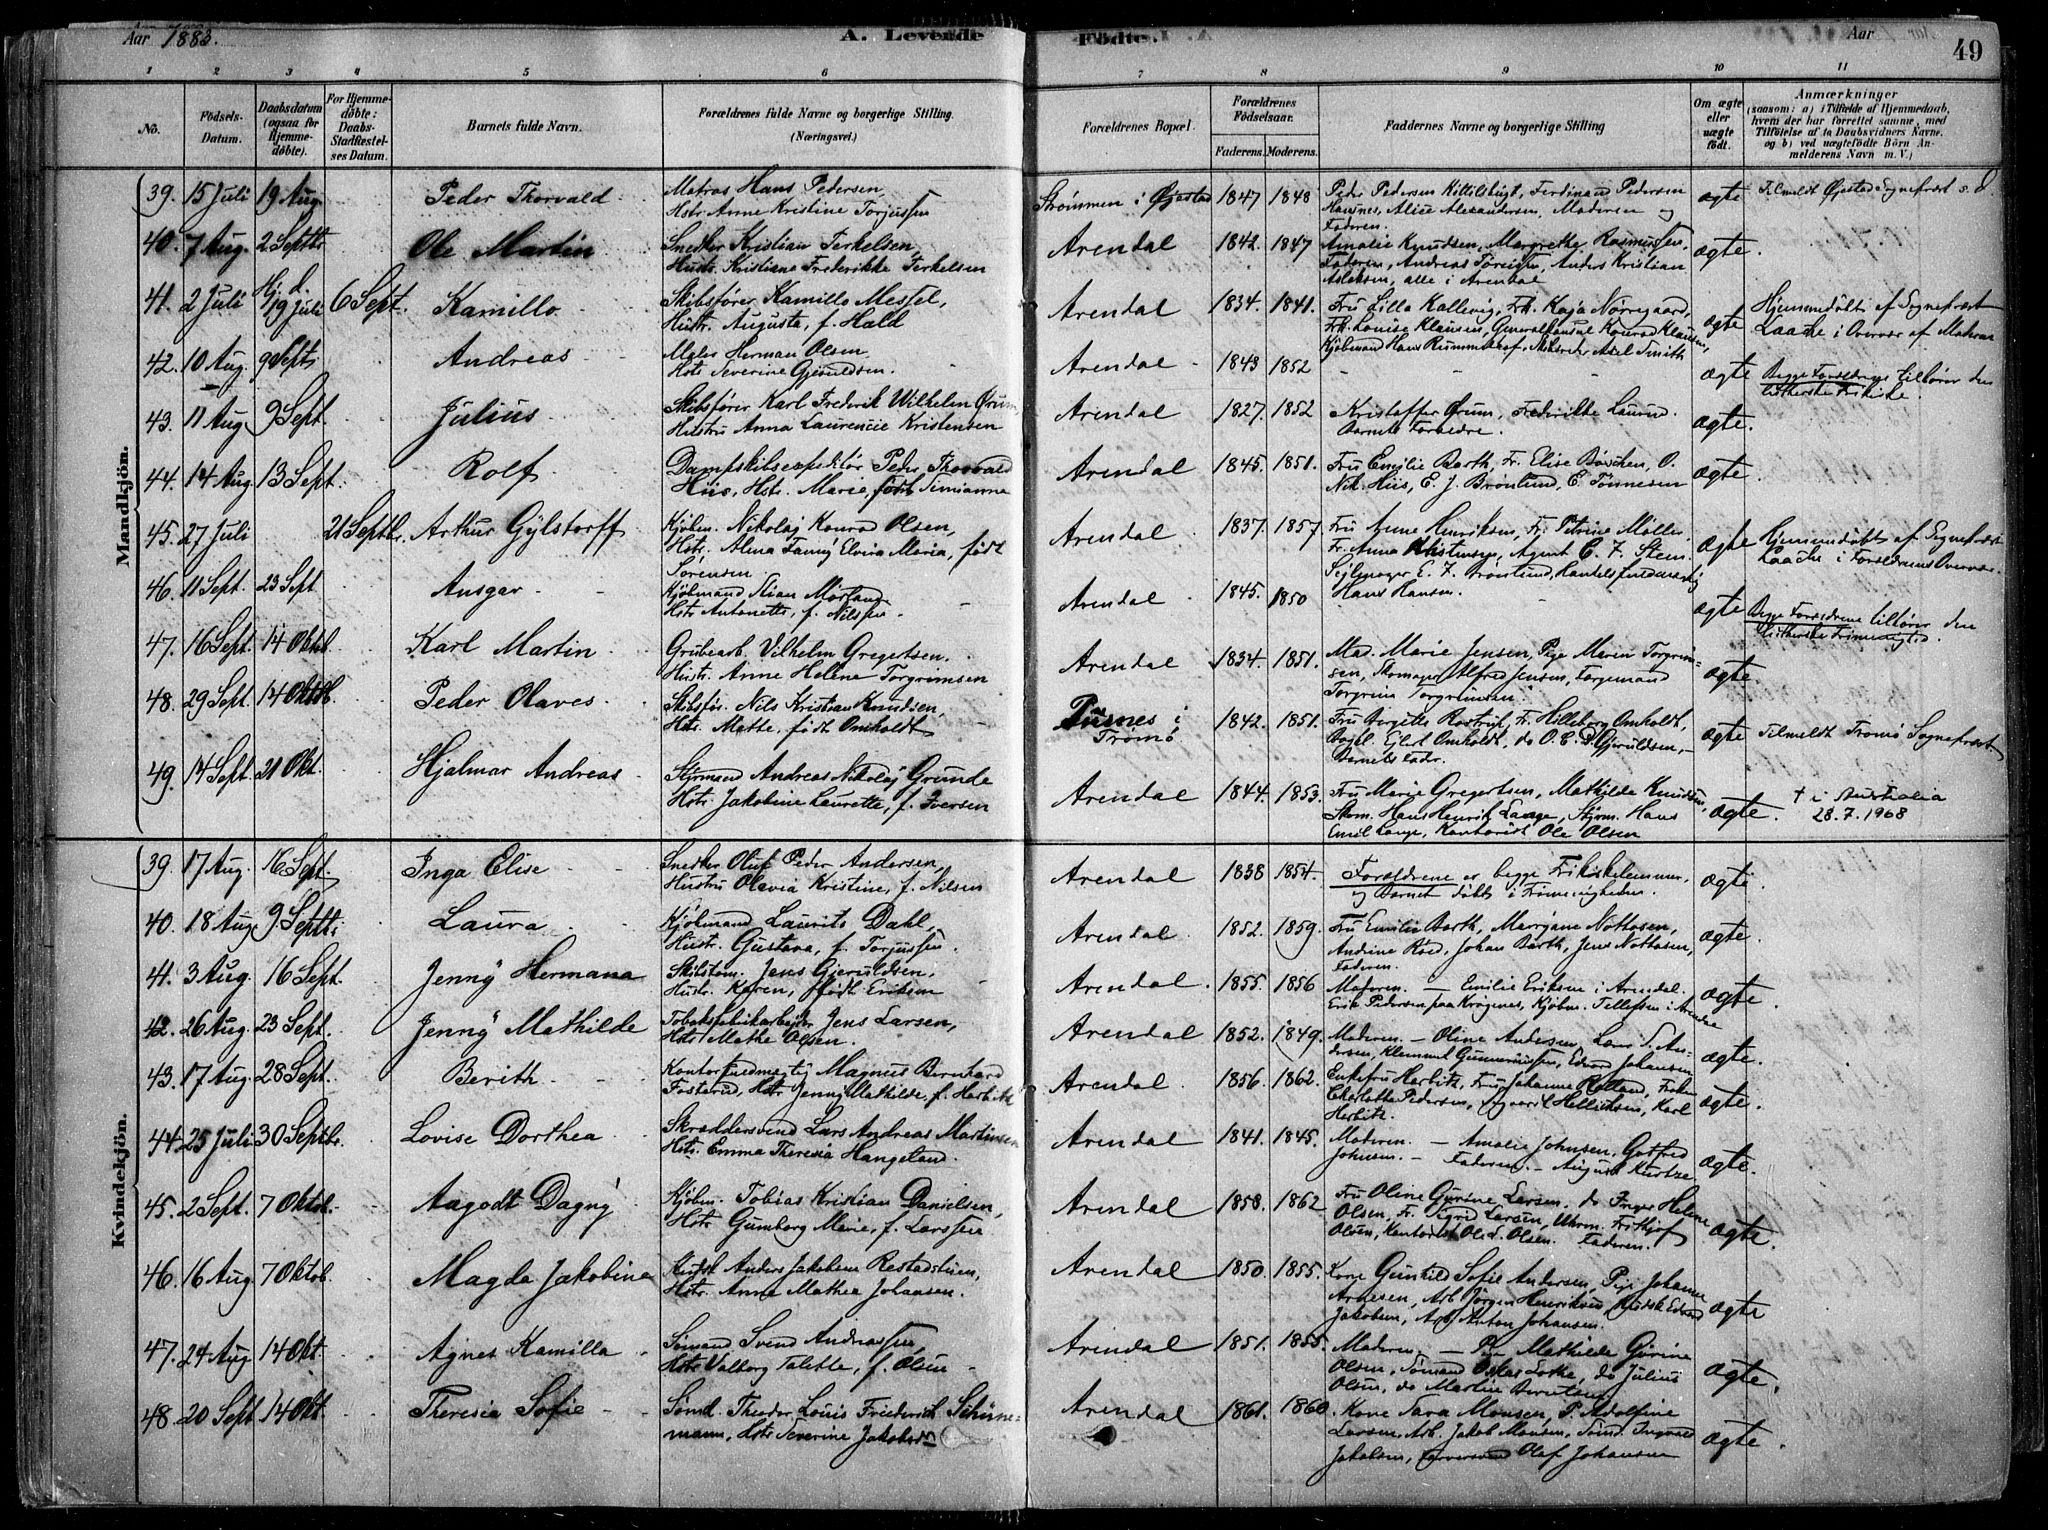 Aar 1883.
A. Levende Födte.
Aar
49
1 2 3 4 5 6 7 8 9 10 11
No.
Födsels-Datum.
Daabsdatum (ogsaa for Hjemme-döbte).
For Hjemme-döbte: Daabs-Stadfæstelses Datum.
Barnets fulde Navn.
Forældrenes fulde Navne og borgerlige Stilling. (Næringsvei.)
Forældrenes Bopæl.
Forældrenes Födselsaar.
Faderens. Moderens.
Faddernes Navne og borgerlige Stilling
Om ægte eller uægte födt.
Anmærkninger
(saasom: a) i Tilfælde af Hjemmedaab,
hvem der har forrettet samme, med
Tilföielse af to Daabsvidners Navne.
og b) ved uægtefödte Börn An-
melderens Navn m. V.)
Mandkjön.
39. 15 Juli 19 Aug. Peder Thorvald
Matros Hans Pedersen
Hstr. Anne Kristine Torjussen
Strømmen i Øjestad 1847 1848
Peder Pedersen Kittilsbugt, Ferdinand Pedersen
Alice Alexandersen, Moderen og
Faderen.
ægte Tilmeldt Øjestad Sognepræst
40. 7 Aug. 2 Septbr. Ole Martin
Snedker Kristian Terkelsen
Hustr. Kristiane Frederikke Terkelsen
Arendal 1842. 1847
Amalie Knudsen, Margrethe Rasmussen,
Faderen, Andreas Anders Kristian
Aslaksen, alle i Arendal
ægte.
41. 2 Juli Hj.d. 19 Juli 6 Sept. Kamillo
Skibsfører Kamillo Messel,
Hustr. Augusta, f. Hald
Arendal 1834. 1841.
Fru Lilla Kallevig, Frk. Kaja Nørregaard,
Frk. Louise Klausen, Generalkonsul Konrad Klausen,
Kjøbmand Hans Axel Smith
ægte Hjemmedøbt af Sognepræst
Laache i Overvær af Moderen
42. 10 Aug. 9 Septr Andreas
Maler Herman Olsen.
Hstr Severine Gjeruldsen.
Arendal 1843 1852
ægte Begge Forældrene tilhører den
lutherske Frikirke.
43. 11 Aug. 9 Sept. Julius
Skibsfører Karl Frederik Wilhelm Ørum
Hustru Anna Laurencie Kristensen
Arendal 1827. 1852
Kristoffer Ørum, Frederikke Laurud.
Barnets Forældre.
ægte.
44. 14 Aug. 13 Sept. Rolf
Dampskibsexpeditør Peder Thorvald
Hiis, Hstr. Marie, født Simianne
Arendal 1845. 1851.
Fru Emilie Barth, Fr. Elise Børschen, O.
Nik. Hiis, E. J. Brønlund, C. Tønnesen
ægte.
45. 27 Juli 21 Septbr. Arthur Gylstorff
Kjøbm. Nikolaj Konrad Olsen,
Hstr. Alma Fanny Elvira Maria, født
Sørensen
Arendal 1837. 1857
Fru Anne Henriksen, Fr. Petrine Møller
Fr. Anna Kristensen, Agent C. F. Steen
Sejlmager E. F. Brønlund, Handelsfuldmægtig
Hans Hansen.
ægte Hjemmedøbt af Sognepræst
Laache i Forældrenes Overvær.
46. 11 Sept. 23 Sept Ansgar
Kjøbmand Stian Mørland
Hstr. Antonette, f. Nilssen
Arendal 1845. 1850
ægte Begge Forældrene tilhører den
lutherske Frimenighed.
47. 16 Sept. 14 Oktob. Karl Martin
Grubearb. Vilhelm Gregertsen.
Hustr. Anne Helene Torgrimsen
Arendal 1834. 1851.
Mad. Marie Jensen, Pige Maren Torgrim-
sen, Skomager Alfred Jensen,
Torgrim Torgrimsen
ægte.
48. 29 Sept. 14 Oktob. Peder Olaves
Skibsfør. Nils Kristian Knudsen,
Hstr. Mathe, født Omholdt
Pusnes i Tromø 1842. 1851.
Fru Rostrup, Fr. Hilleborg Omholdt,
Ejlert Omholdt, do O. C. D. Gjeruldsen,
Barnets Fader.
ægte Tilmeldt Tromø Sognepræst
49. 14 Sept. 21 Okt. Hjalmar Andreas
Styrmand Andreas Nikolaj Grunde
Hstr. Jakobine Laurette, f. Iversen
Arendal 1844. 1853.
Fru Marie Gregertsen, Mathilde Knudsen,
Skom. Hans Henrik Lange, Styrm. Hans
Emil Lange, Kontorist Ole Olsen
ægte. † i Australia
28.7.1968
Kvindekjön.
39. 17 Aug. 16 Sept. Inga Elise
Snedker Oluf Peder Andersen,
Hustru Olevia Kristine, f. Nilsen
Arendal 1838 1854.
Forældrene er begge Frikirkelemmer,
og Barnet døbt i Frimenigheden.
ægte
40. 18 Aug 9 Septbr. Laura
Kjøbmand Laurits Dahl,
Hustr. Gustava, f. Torjussen.
Arendal 1852. 1859.
Fru Emilie Barth, Mariane Nottosen,
Andrine Roed, Johan Barth, Jens Nottosen,
Faderen.
ægte.
41. 3 Aug. 16 Sept. Jenny Hermana
Jens Gjeruldsen,
Hustr. Karen, født Eriksen
Arendal. 1855. 1856
Moderen. — Emilie Eriksen i Arendal.
Erik Pedersen paa Krøgenes, Kjøbm. Tellefsen i Arendal
ægte.
42. 26 Aug. 23 Sept. Jenny Mathilde
Tobaksfabrikarbejder Jens Larsen,
Hstr Mathe Olsen.
Arendal 1852. 1849.
Moderen. — Oline Andersen, Lars S. An-
dersen, Klemmet Gunnerussen, Edvard Johansen
ægte.
43. 17 Aug. 28 Sept. Berith
Kontorfuldmægtig Magnus Bernhard
Fosterud, Hstr Jenny Mathilde, f. Herbitz
Arendal. 1856. 1862.
Enkefru Herbitz, Fru Johanne Holland, Frøken
Charlotte Pedersen, Sigvard Hellichsen, Karl
Herbitz.
ægte.
44. 25 Juli 30 Septbr. Lovise Dorthea
Skræddersvend Lars Andreas Martinsen
Hstr. Emma Theresia Hangeland.
Arendal 1841. 1845.
Moderen. — Amalie Johnsen, Gotfred
Johnsen. — Faderen. — August Kurtze
ægte.
45. 2 Sept. 7 Oktob. Aagodt Dagny
Kjøbm. Tobias Kristian Danielsen,
Hstr Gumborg Marie, f. Larssen
Arendal 1858. 1862
Fru Oline Gurine Larsen, do Inger Helene
Olsen, Fr. Sigrid Larsen, Uhrm. Frithjof
Olsen, Kontorist Ole L. Olsen. Faderen.
ægte.
46. 16 Aug. 7 Oktob. Magda Jakobine
Kudsk Anders Jakobsen Restadstuen,
Hstr. Anne Mathea Johansen.
Arendal 1850. 1855.
Kone Gunhild Sofie Andersen, Pige Johanne
Arnesen, Arb. Jørgen Henriksen, Kudsk Edvard
Jakobsen, Arb. Anton Johansen.
ægte
47. 24 Aug 14 Okt. Agnes Kamilla
Sømand Svend Andreassen,
Hstr Valborg Talette, f. Olsen
Arendal 1851. 1855.
Moderen. — Pige Mathilde Gurine
Olsen, Sømand Oskar Lotke, do Julius
Olsen, do Martin Berntsen
ægte.
48. 20 Sept 14 Okt. Theresia Sofie
Sømd. Theodor Louis Friederich Schüne-
mann, Hstr Severine Jakobsen
Arendal 1861. 1860
Kone Sara Monsen, P. Adolfine
Larsen, Arb. Jakob Monsen, Sømd. Ingvald
Jakobsen, Farversvend Olaf Johansen
ægte.